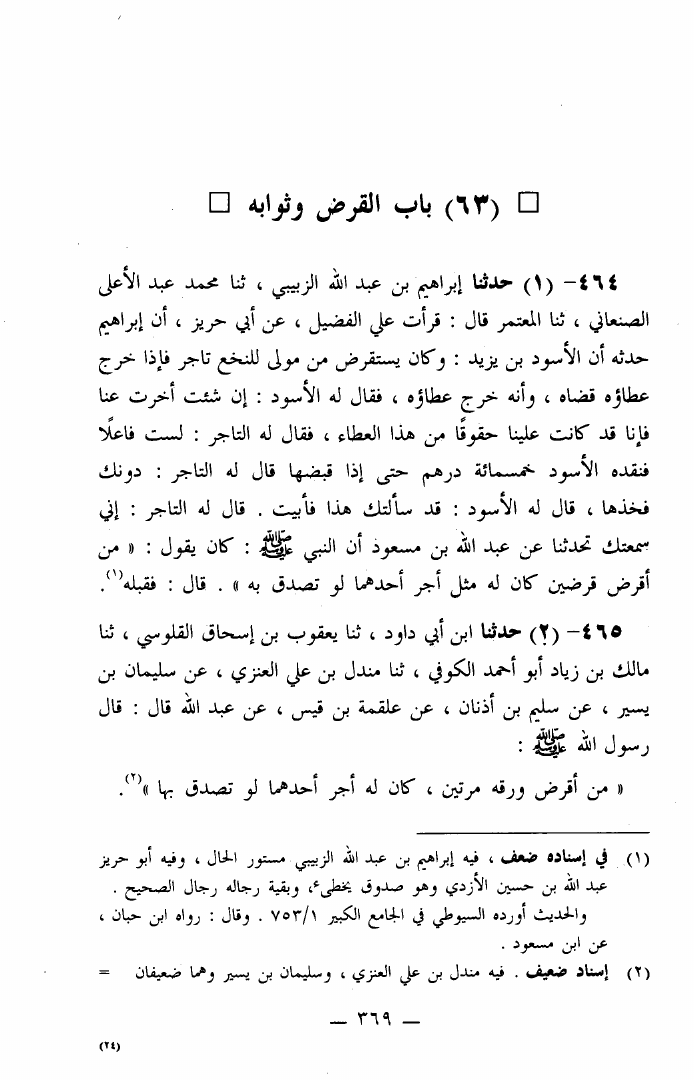 □ (٦٣) باب القرض وثوابه □
٤٦٤- (١) حدثنا إبراهيم بن عبد الله الزبيبي ، ثنا محمد عبد الأعلى
الصنعاني ، ثنا المعتمر قال : قرأت علي الفضيل ، عن أبي حريز ، أن إبراهيم
حدثه أن الأسود بن يزيد : وكان يستقرض من مولى للنخع تاجر فإذا خرج
عطاؤه قضاه ، وأنه خرج عطاؤه ، فقال له الأسود : إن شئت أخرت عنا
فإنا قد كانت علينا حقوقًا من هذا العطاء ، فقال له التاجر : لست فاعلًا
فنقده الأسود خمسمائة درهم حتى إذا قبضها قال له التاجر : دونك
فخذها ، قال له الأسود : قد سألتك هذا فأبيت . قال له التاجر : إني
سمعتك تحدثنا عن عبد الله بن مسعود أن النبي ﷺ : كان يقول : « من
أقرض قرضين كان له مثل أجر أحدهما لو تصدق به » . قال : فقبله(١).
٤٦٥- (٢) حدثنا ابن أبي داود ، ثنا يعقوب بن إسحاق القلوسي ، ثنا
مالك بن زياد أبو أحمد الكوفي ، ثنا مندل بن علي العنزي ، عن سليمان بن
يسير ، عن سليم بن أذنان ، عن علقمة بن قيس ، عن عبد الله قال : قال
رسول الله ﷺ :
« من أقرض ورقه مرتين ، كان له أجر أحدهما لو تصدق بها »(٢).
(١) في إسناده ضعف ، فيه إبراهيم بن عبد الله الزبيبي مستور الحال ، وفيه أبو حريز
عبد الله بن حسين الأزدي وهو صدوق يخطىء، وبقية رجاله رجال الصحيح .
والحديث أورده السيوطي في الجامع الكبير ٧٥٣/١ . وقال : رواه ابن حبان ،
عن ابن مسعود .
(٢) إسناد ضعيف . فيه مندل بن علي العنزي ، وسليمان بن يسير وهما ضعيفان =
— ٣٦٩ —
(٢٤)